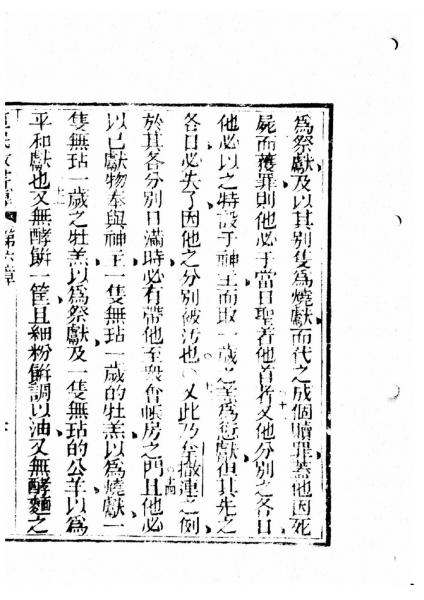 為祭獻及以其別隻為燒獻而代之成個贖罪蓋他因死
屍而獲罪則他必于當日聖着他首者又他分別之各日
他必以之特設于神主而取一歲之羔為愆獻但其先之
各日必失了因他之分別被污也○又此乃拿撒連之例
於其各分別日滿時必有帶他至眾會帳房之門且他必
以己獻物奉與神主一隻無玷一歲的牡羔以為燒獻一
隻無玷一歲之牡羔以為祭獻及一隻無玷的公羊以為
平和獻也又無酵餅一筐且細粉餅調以油又無酵麵之
第六章